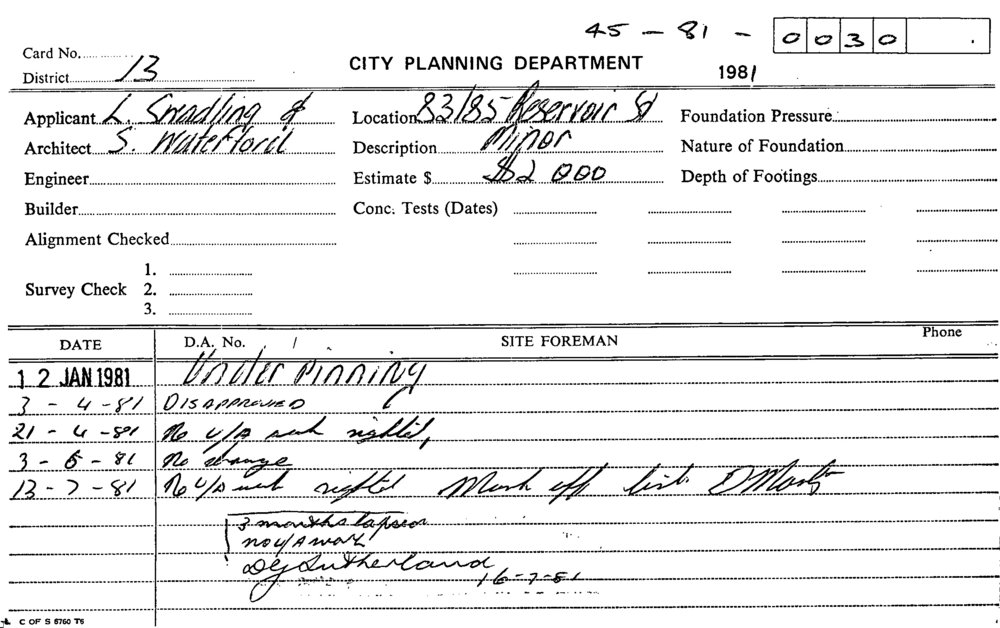 45 - 81 - 0030
Card No.
District 13
CITY PLANNING DEPARTMENT
1981
Applicant L. Swadling &
Location 83/85 Reservoir St
Foundation Pressure
Architect S. Waterford
Description Minor
Nature of Foundation
Engineer
Estimate $ $2 000
Depth of Footings
Builder
Conc. Tests (Dates)
Alignment Checked
1.
Survey Check 2.
3.
DATE D.A. No. / SITE FOREMAN Phone
12 JAN 1981 Under pinning
3 - 4 - 81 DISAPPROVED
21 - 4 - 81 No U/A work sighted,
3 - 6 - 81 No change
13 - 7 - 81 No U/A work sighted Mark off list.
3 months lapsed
no U/A work
DJ Sutherland
16-7-81
C OF S 6760 T6